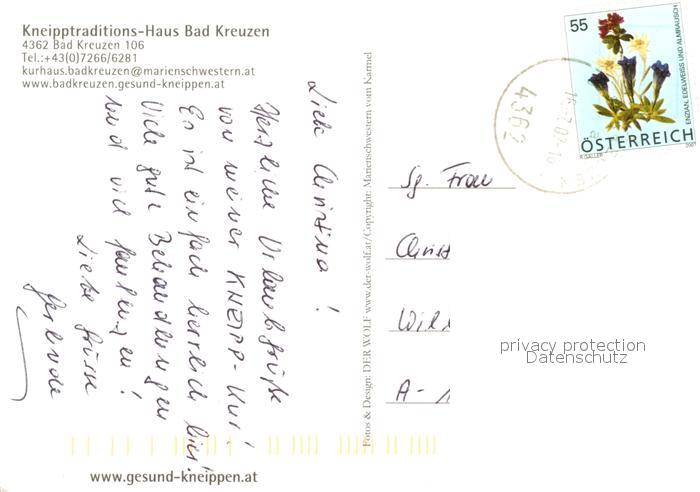 Kneipptraditions-Haus Bad Kreuzen
4362 Bad Kreuzen 106
Tel.:+43(0)7266/6281
kurhaus.badkreuzen@marienschwestern.at
www.badkreuzen.gesund-kneippen.at
Liebe Christina!
Herzliche Urlaubsgrüße
von meiner KNEIPP-Kur!
Es ist einfach herrlich hier!
Viele gute Behandlungen
und viel faulenzen!
Liebe Grüsse
Gerlinde
www.gesund-kneippen.at
Fotos & Design: DER WOLF www.der-wolf.at/Copyright: Marienschwestern vom Karmel
55
ENZIAN, EDELWEISS UND ALMRAUSCH
ÖSTERREICH
2007
4362
Sg. Frau
Christ
A-1
privacy protection
Datenschutz